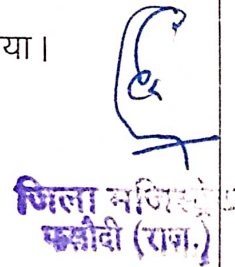 या।
जिला मजिस्ट्रेट
फलौदी (राज.)